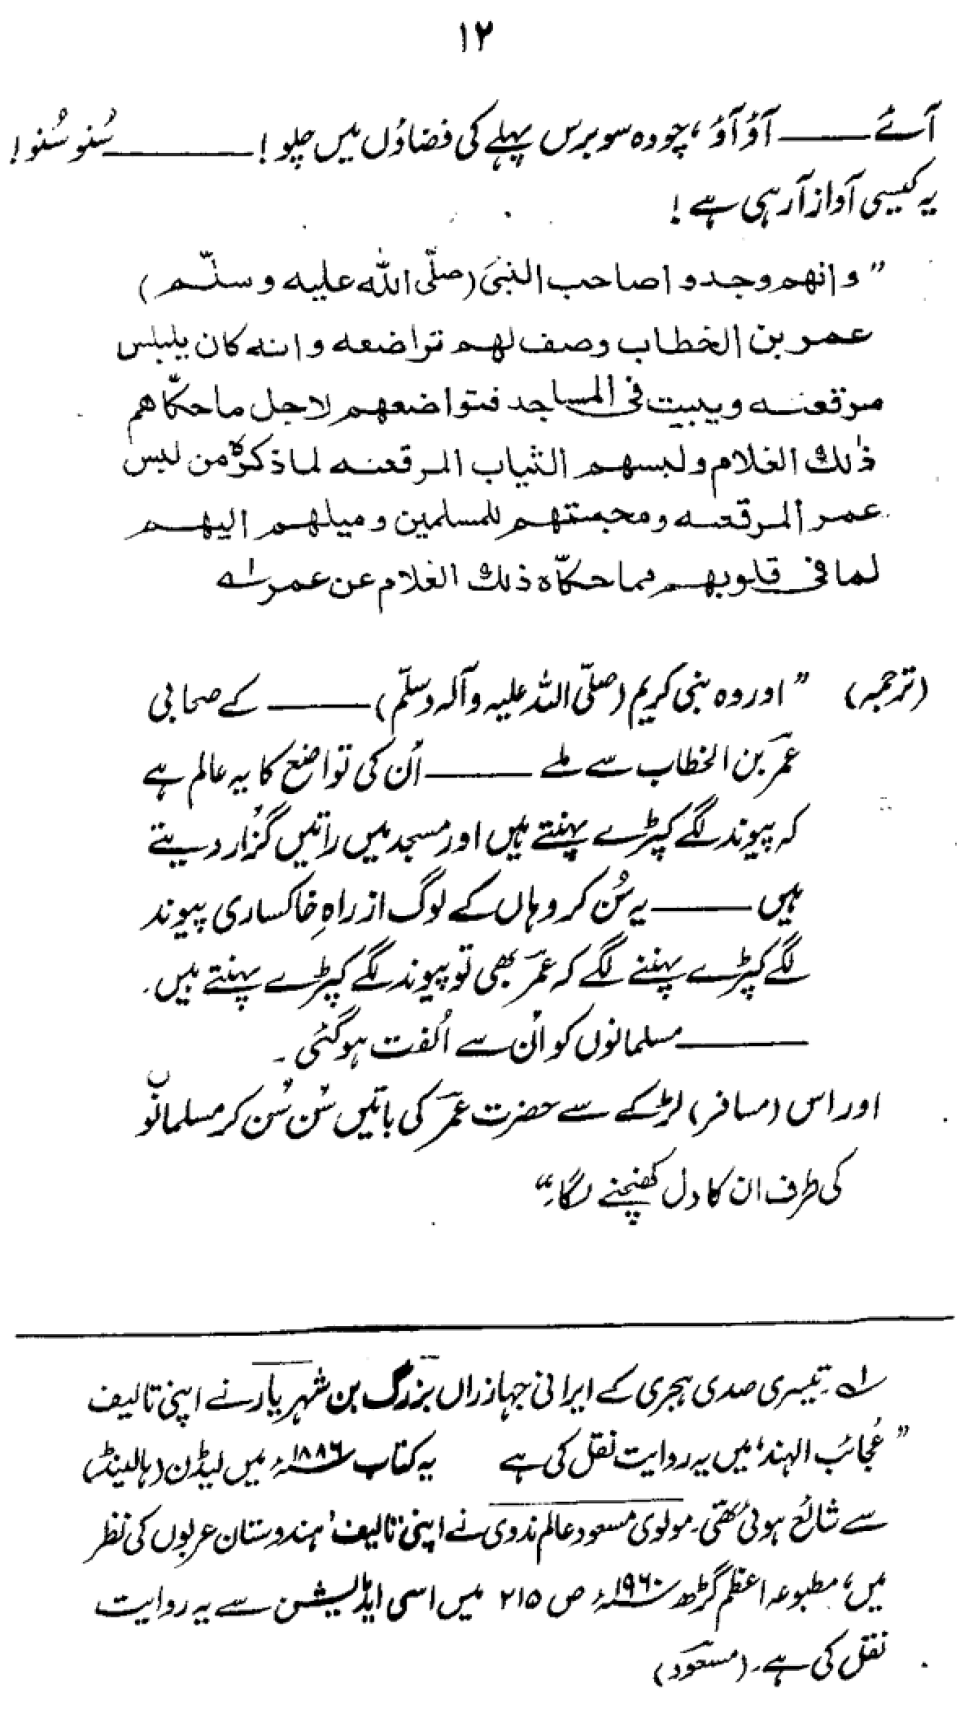 ۱۲
آئے ——— آؤ آؤ ، چودہ سو برس پہلے کی فضاؤں میں چلو ! ——— سُنو سُنو !
یہ کیسی آواز آرہی ہے !
” وانهم وجدوا صاحب النبی (صلّی اللّٰه علیه وسلّم)
عمر بن الخطاب وصف لهم تواضعه وانه کان یلبس
مرقعه ویبیت فی المساجد فتواضعهم لاجل ما حکّاهم
ذٰلك الغلام ولبسهم الثیاب المرقعه لما ذکرهٗ من لبس
عمر المرقعه ومحبتهم للمسلمین ومیلهم الیهم
لما فی قلوبهم مما حکّاه ذلك الغلام عن عمر ؎۱
(ترجمہ) ” اور وہ نبی کریم (صلّی اللّٰہ علیہ وآلہ وسلّم) ——— کے صحابی
عمرؓ بن الخطاب سے ملے ——— اُن کی تواضع کا یہ عالم ہے
کہ پیوند لگے کپڑے پہنتے ہیں اور مسجد میں راتیں گزار دیتے
ہیں ——— یہ سُن کر وہاں کے لوگ از راہِ خاکساری پیوند
لگے کپڑے پہننے لگے کہ عمرؓ بھی تو پیوند لگے کپڑے پہنتے ہیں۔
——— مسلمانوں کو اُن سے اُلفت ہوگئی ۔
اور اس (مسافر) لڑکے سے حضرت عمرؓ کی باتیں سُن سُن کر مسلمانوں
کی طرف ان کا دل کھنچنے لگا۔“
؎۱ تیسری صدی ہجری کے ایرانی جہازراں بزرگ بن شہریار نے اپنی تالیف
” عُجائب الہند‘ میں یہ روایت نقل کی ہے یہ کتاب ۱۸۸۶ء میں لیڈن (ہالینڈ)
سے شائع ہوئی تھی۔ مولوی مسعود عالم ندوی نے اپنی تالیف ’ہندوستان عربوں کی نظر
میں‘، مطبوعہ اعظم گڑھ ۱۹۶۰ء ص ۲۱۵ میں اسی ایڈیشن سے یہ روایت
نقل کی ہے۔ (مسعود)